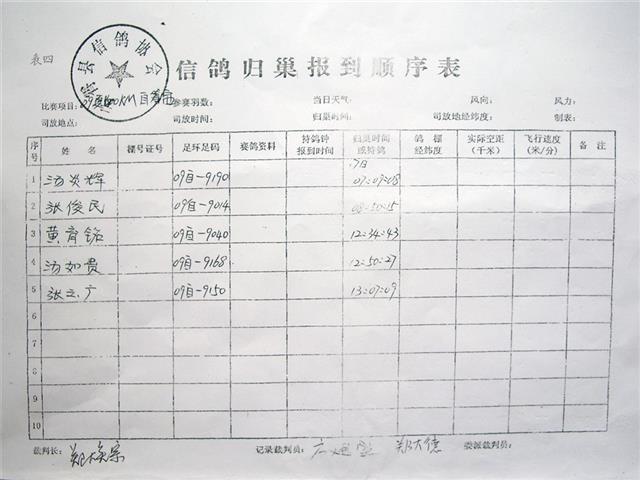 表四
县信鸽协会
信鸽归巢报到顺序表
比赛项目: 参赛羽数: 当日天气: 风向: 风力:
司放地点: 司放时间: 归巢时间: 司放地经纬度: 制表:
序号 姓名 棚号证号 足环足码 赛鸽资料 持鸽钟报到时间 归巢时间或持鸽 鸽棚经纬度 实际空距(千米) 飞行速度(米/分) 备注
7日
1 汤炎辉 09自-9190 07:09:08
2 张俊民 09自-9014 08:50:15
3 黄育铭 09自-9040 12:34:43
4 汤如贵 09自-9168 12:50:27
5 张立广 09自-9150 13:07:09
6
7
8
9
10
裁判长: 记录裁判员: 郑大德 委派裁判员: